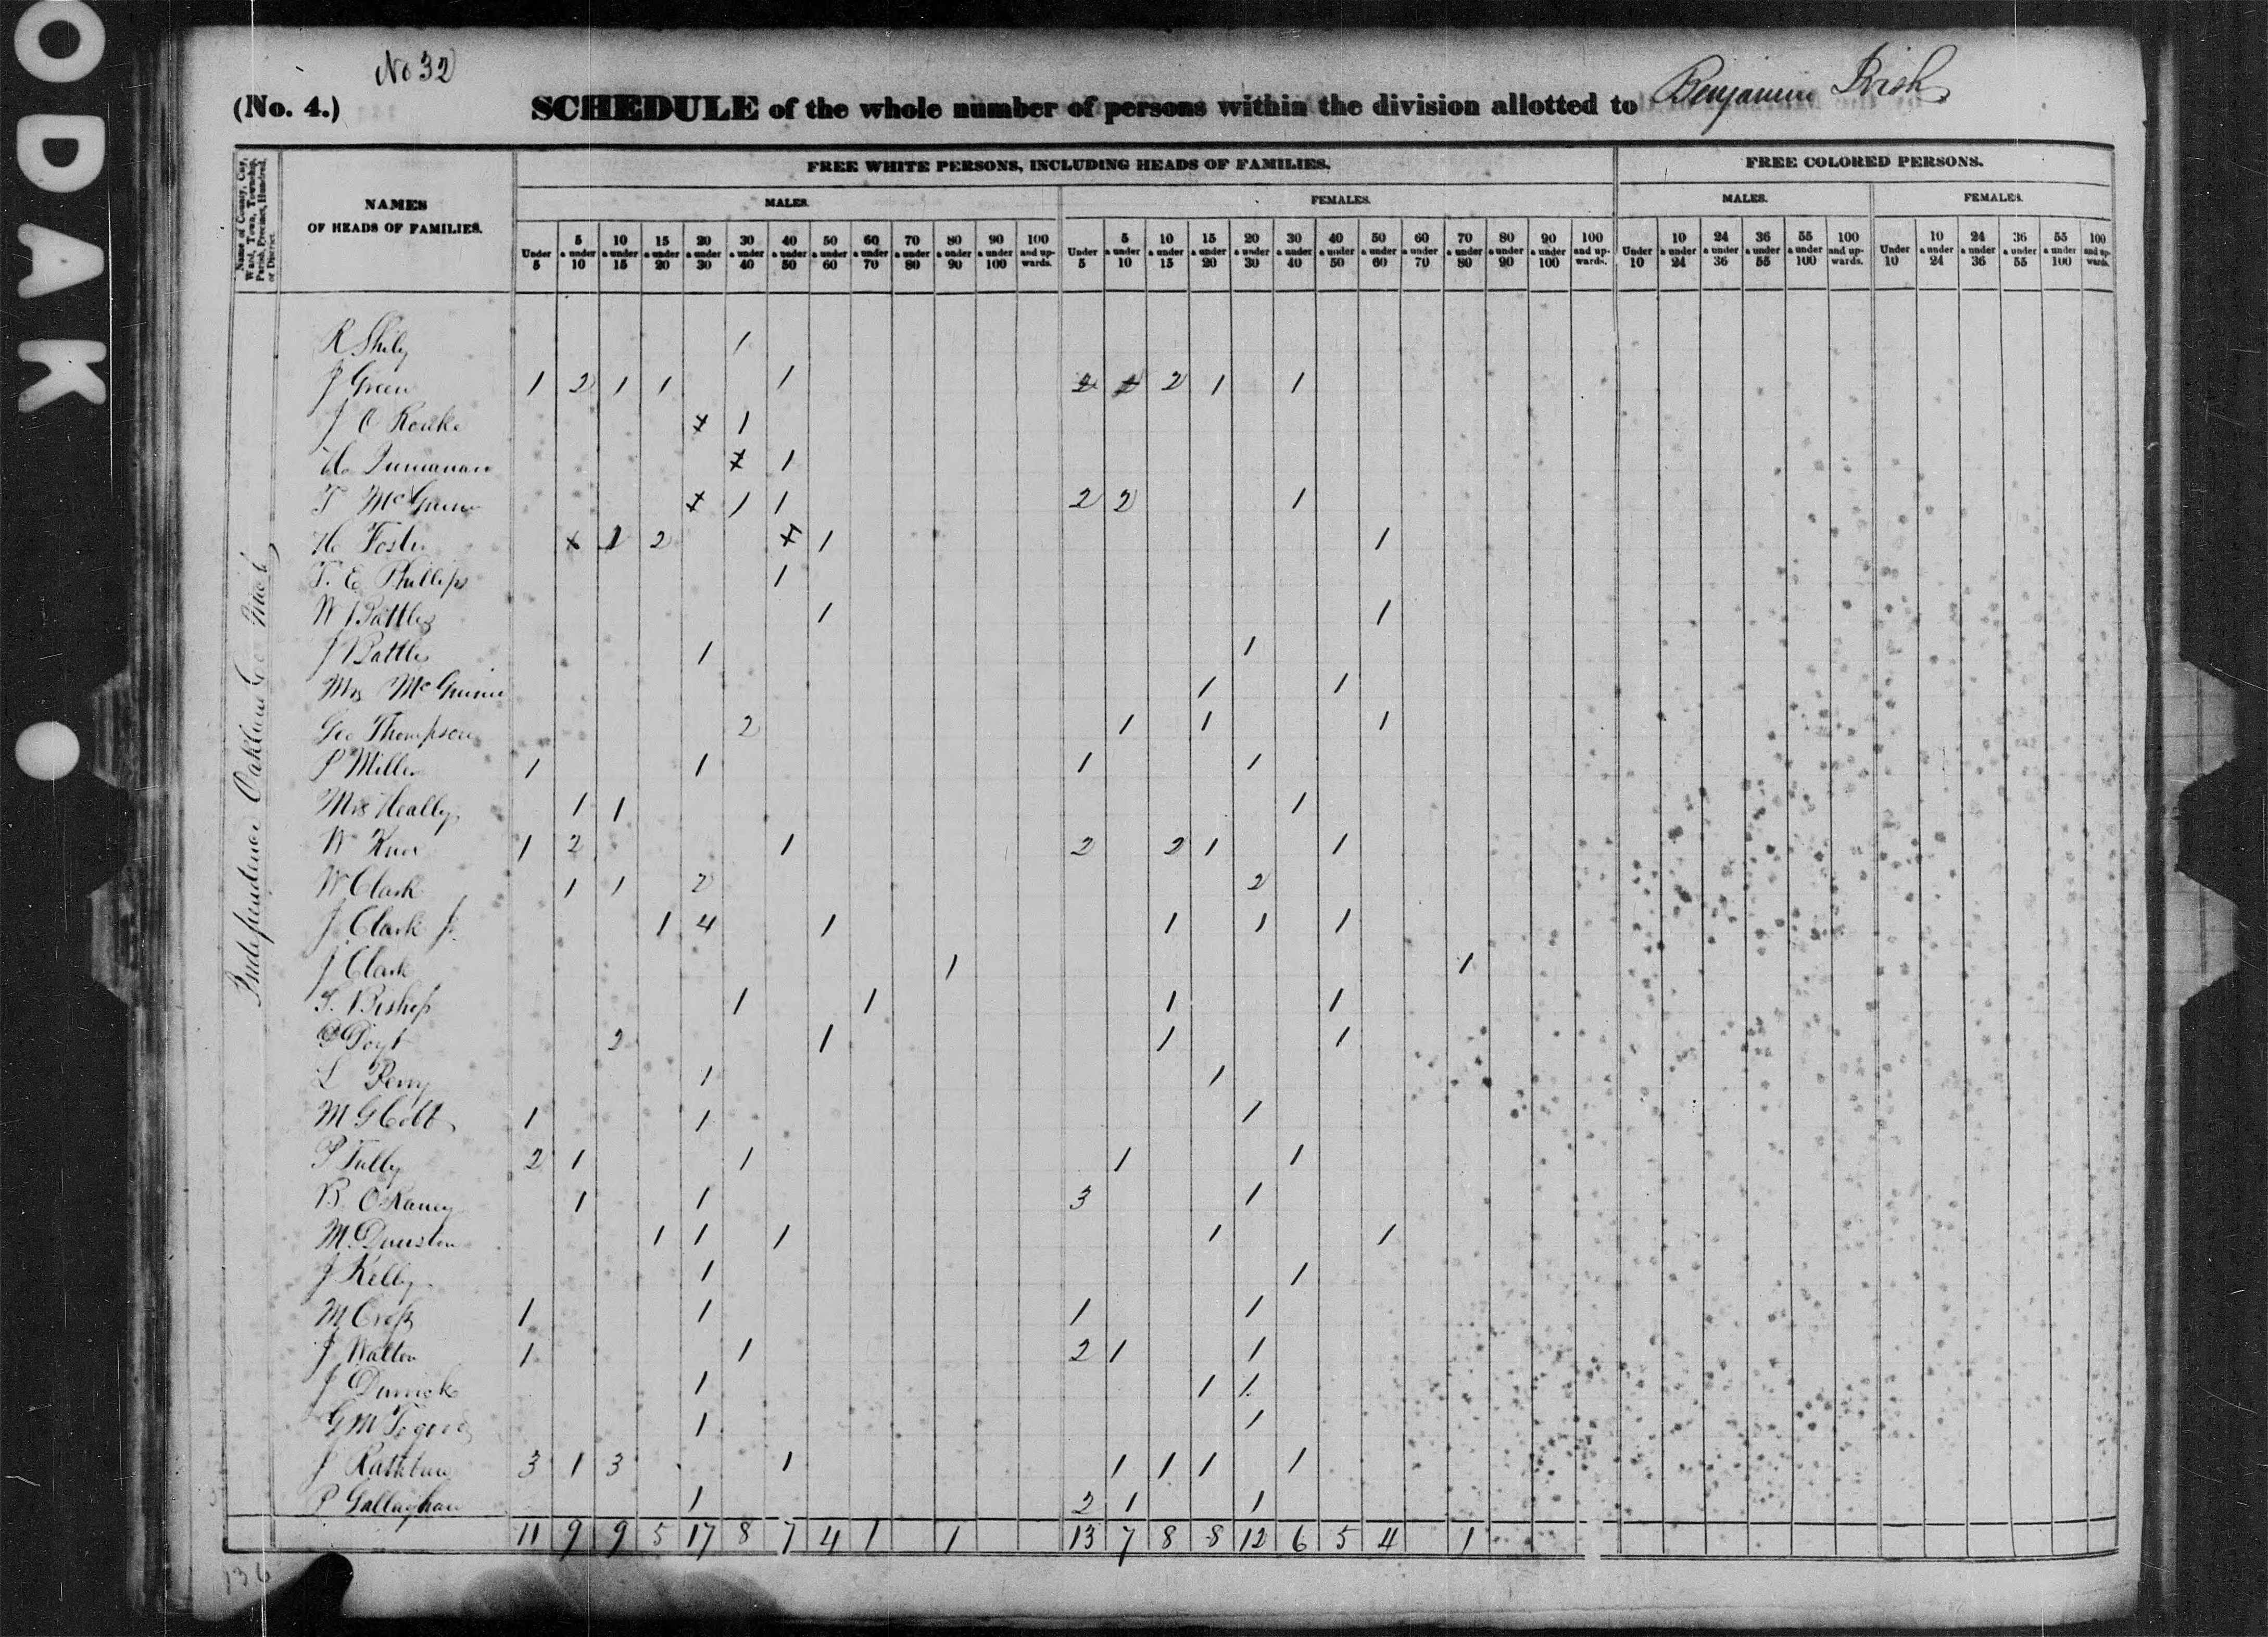 ODAK
No 32
(No. 4.) SCHEDULE of the whole number of persons within the division allotted to Benjamin Irish
Name of County, City, Ward, Town, Township, Parish, Precinct, Hundred, or District.
NAMES OF HEADS OF FAMILIES.
FREE WHITE PERSONS, INCLUDING HEADS OF FAMILIES.
FREE COLORED PERSONS.
MALES. FEMALES. MALES. FEMALES.
Under 5 | 5 & under 10 | 10 & under 15 | 15 & under 20 | 20 & under 30 | 30 & under 40 | 40 & under 50 | 50 & under 60 | 60 & under 70 | 70 & under 80 | 80 & under 90 | 90 & under 100 | 100 and up-wards. | Under 5 | 5 & under 10 | 10 & under 15 | 15 & under 20 | 20 & under 30 | 30 & under 40 | 40 & under 50 | 50 & under 60 | 60 & under 70 | 70 & under 80 | 80 & under 90 | 90 & under 100 | 100 and up-wards. | Under 10 | 10 & under 24 | 24 & under 36 | 36 & under 55 | 55 & under 100 | 100 and up-wards. | Under 10 | 10 & under 24 | 24 & under 36 | 36 & under 55 | 55 & under 100 | 100 and up-wards.
Independence Oakland Co Mich
R 1
J Green 1 2 1 1 1 2 2 2 1 1
J O Roake 1
H. 1
T McGuin 1 1 2 2 1
H. Foster 1 2 1 1
T. E Phillips 1
W Battles 1 1
J Battles 1 1
Mrs McGuin 1 1
Geo Thompson 2 1 1 1
P Miller 1 1 1 1
Mrs Heally 1 1 1
W Knox 1 2 1 2 2 1 1
W Clark 1 1 2 2
J Clark Jr 1 4 1 1 1 1
J Clark 1 1
T. Bishop 1 1 1 1
2 1 1 1
L Perry 1 1
M G Cobb 1 1 1
P Tully 2 1 1 1 1
B. O Raney 1 1 3 1
M. 1 1 1 1 1
J Kelly 1 1
M 1 1 1 1
J Walton 1 1 2 1 1
J 1 1 1
G M 1 1
J Rathbun 3 1 3 1 1 1 1 1
P Gallaghan 1 2 1 1
11 9 9 5 17 8 7 4 1 1 13 7 8 8 12 6 5 4 1
136